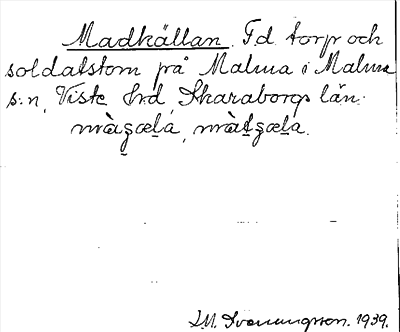 Madkällan. F.d. torp och
soldatstom på Malma i Malma
s:n, Viste hrd, Skaraborgs län:
S.M. Svenungsson. 1939.